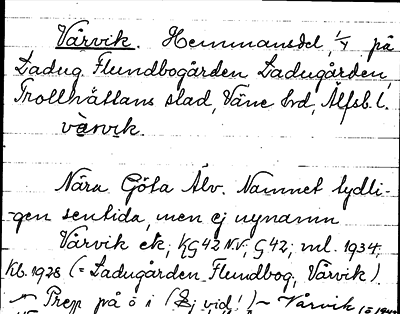 Vårvik. Hemmansdel, 1/4 på
Ladug. Flundbogården Ladugården,
Trollhättans stad, Väne hd, Älfsb. l.
vårvik.
Nära Göta Älv. Namnet tydli-
-gen sentida, men ej nynamn
Vårvik ek, KG42 NV, G42; ml. 1934.
Kb. 1928 (= Ladugården Flundbog, Vårvik).
Prep på ö i (Ej vid!) ~ Vårvik